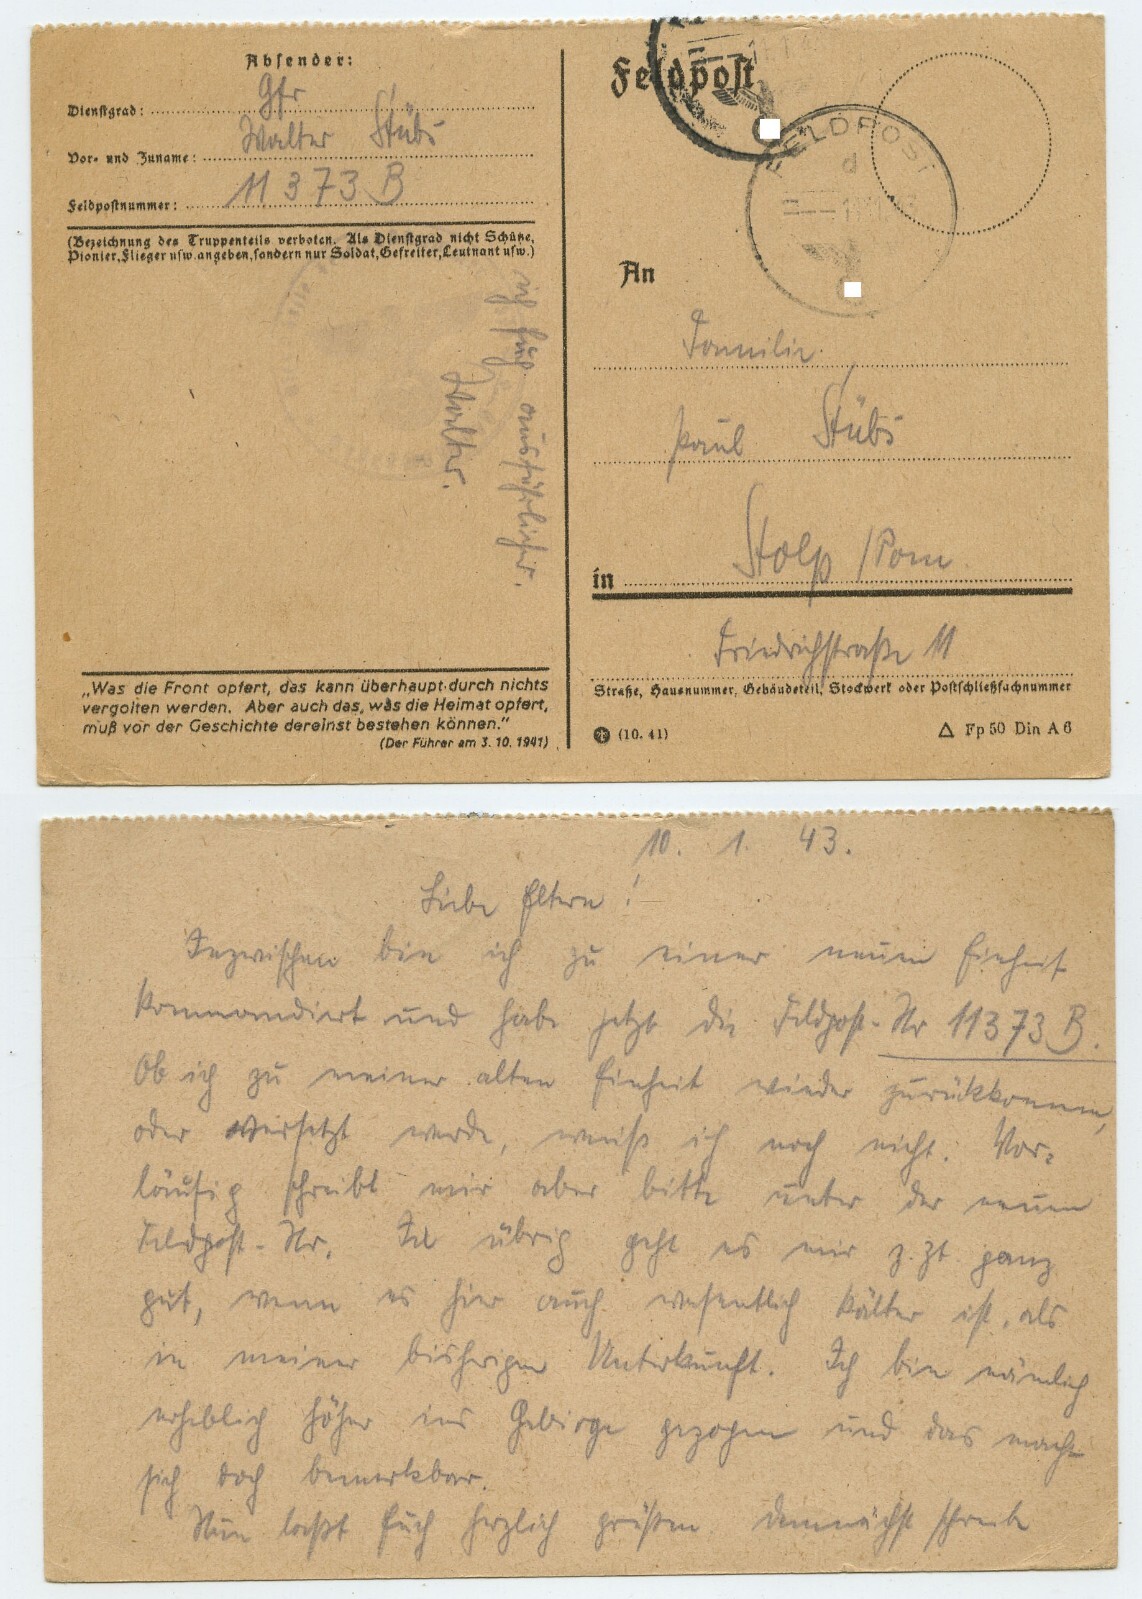 Absender:
Dienstgrad: Gfr
Vor- und Zuname: Walter Stübs
Feldpostnummer: 11 373 B
(Bezeichnung des Truppenteils verboten. Als Dienstgrad nicht Schütze,
Pionier, Flieger usw. angeben, sondern nur Soldat, Gefreiter, Leutnant usw.)
ich Euch ausführlicher.
Walter.
„Was die Front opfert, das kann überhaupt durch nichts
vergolten werden. Aber auch das, was die Heimat opfert,
muß vor der Geschichte dereinst bestehen können.“
(Der Führer am 3. 10. 1941)
Feldpost
FELDPOST
d
An
Familie
Paul Stübs
in Stolp /Pom.
Friedrichstraße 11
Straße, Hausnummer, Gebäudeteil, Stockwerk oder Postschließfachnummer
(10. 41)
△ Fp 50 Din A 6
10. 1. 43.
Liebe Eltern!
Inzwischen bin ich zu einer neuen Einheit
kommandiert und habe jetzt die Feldpost-Nr 11373 B.
Ob ich zu meiner alten Einheit wieder zurückkomme,
oder versetzt werde, weiß ich noch nicht. Vor=
läufig schreibt mir aber bitte unter der neuen
Feldpost-Nr. Im übrig geht es mir z. Zt. ganz
gut, wenn es hier auch wesentlich kälter ist, als
in meiner bisherigen Unterkunft. Ich bin nämlich
erheblich höher ins Gebirge gezogen und das macht
sich doch bemerkbar.
Nun laßt Euch herzlich grüßen demnächst schreibe